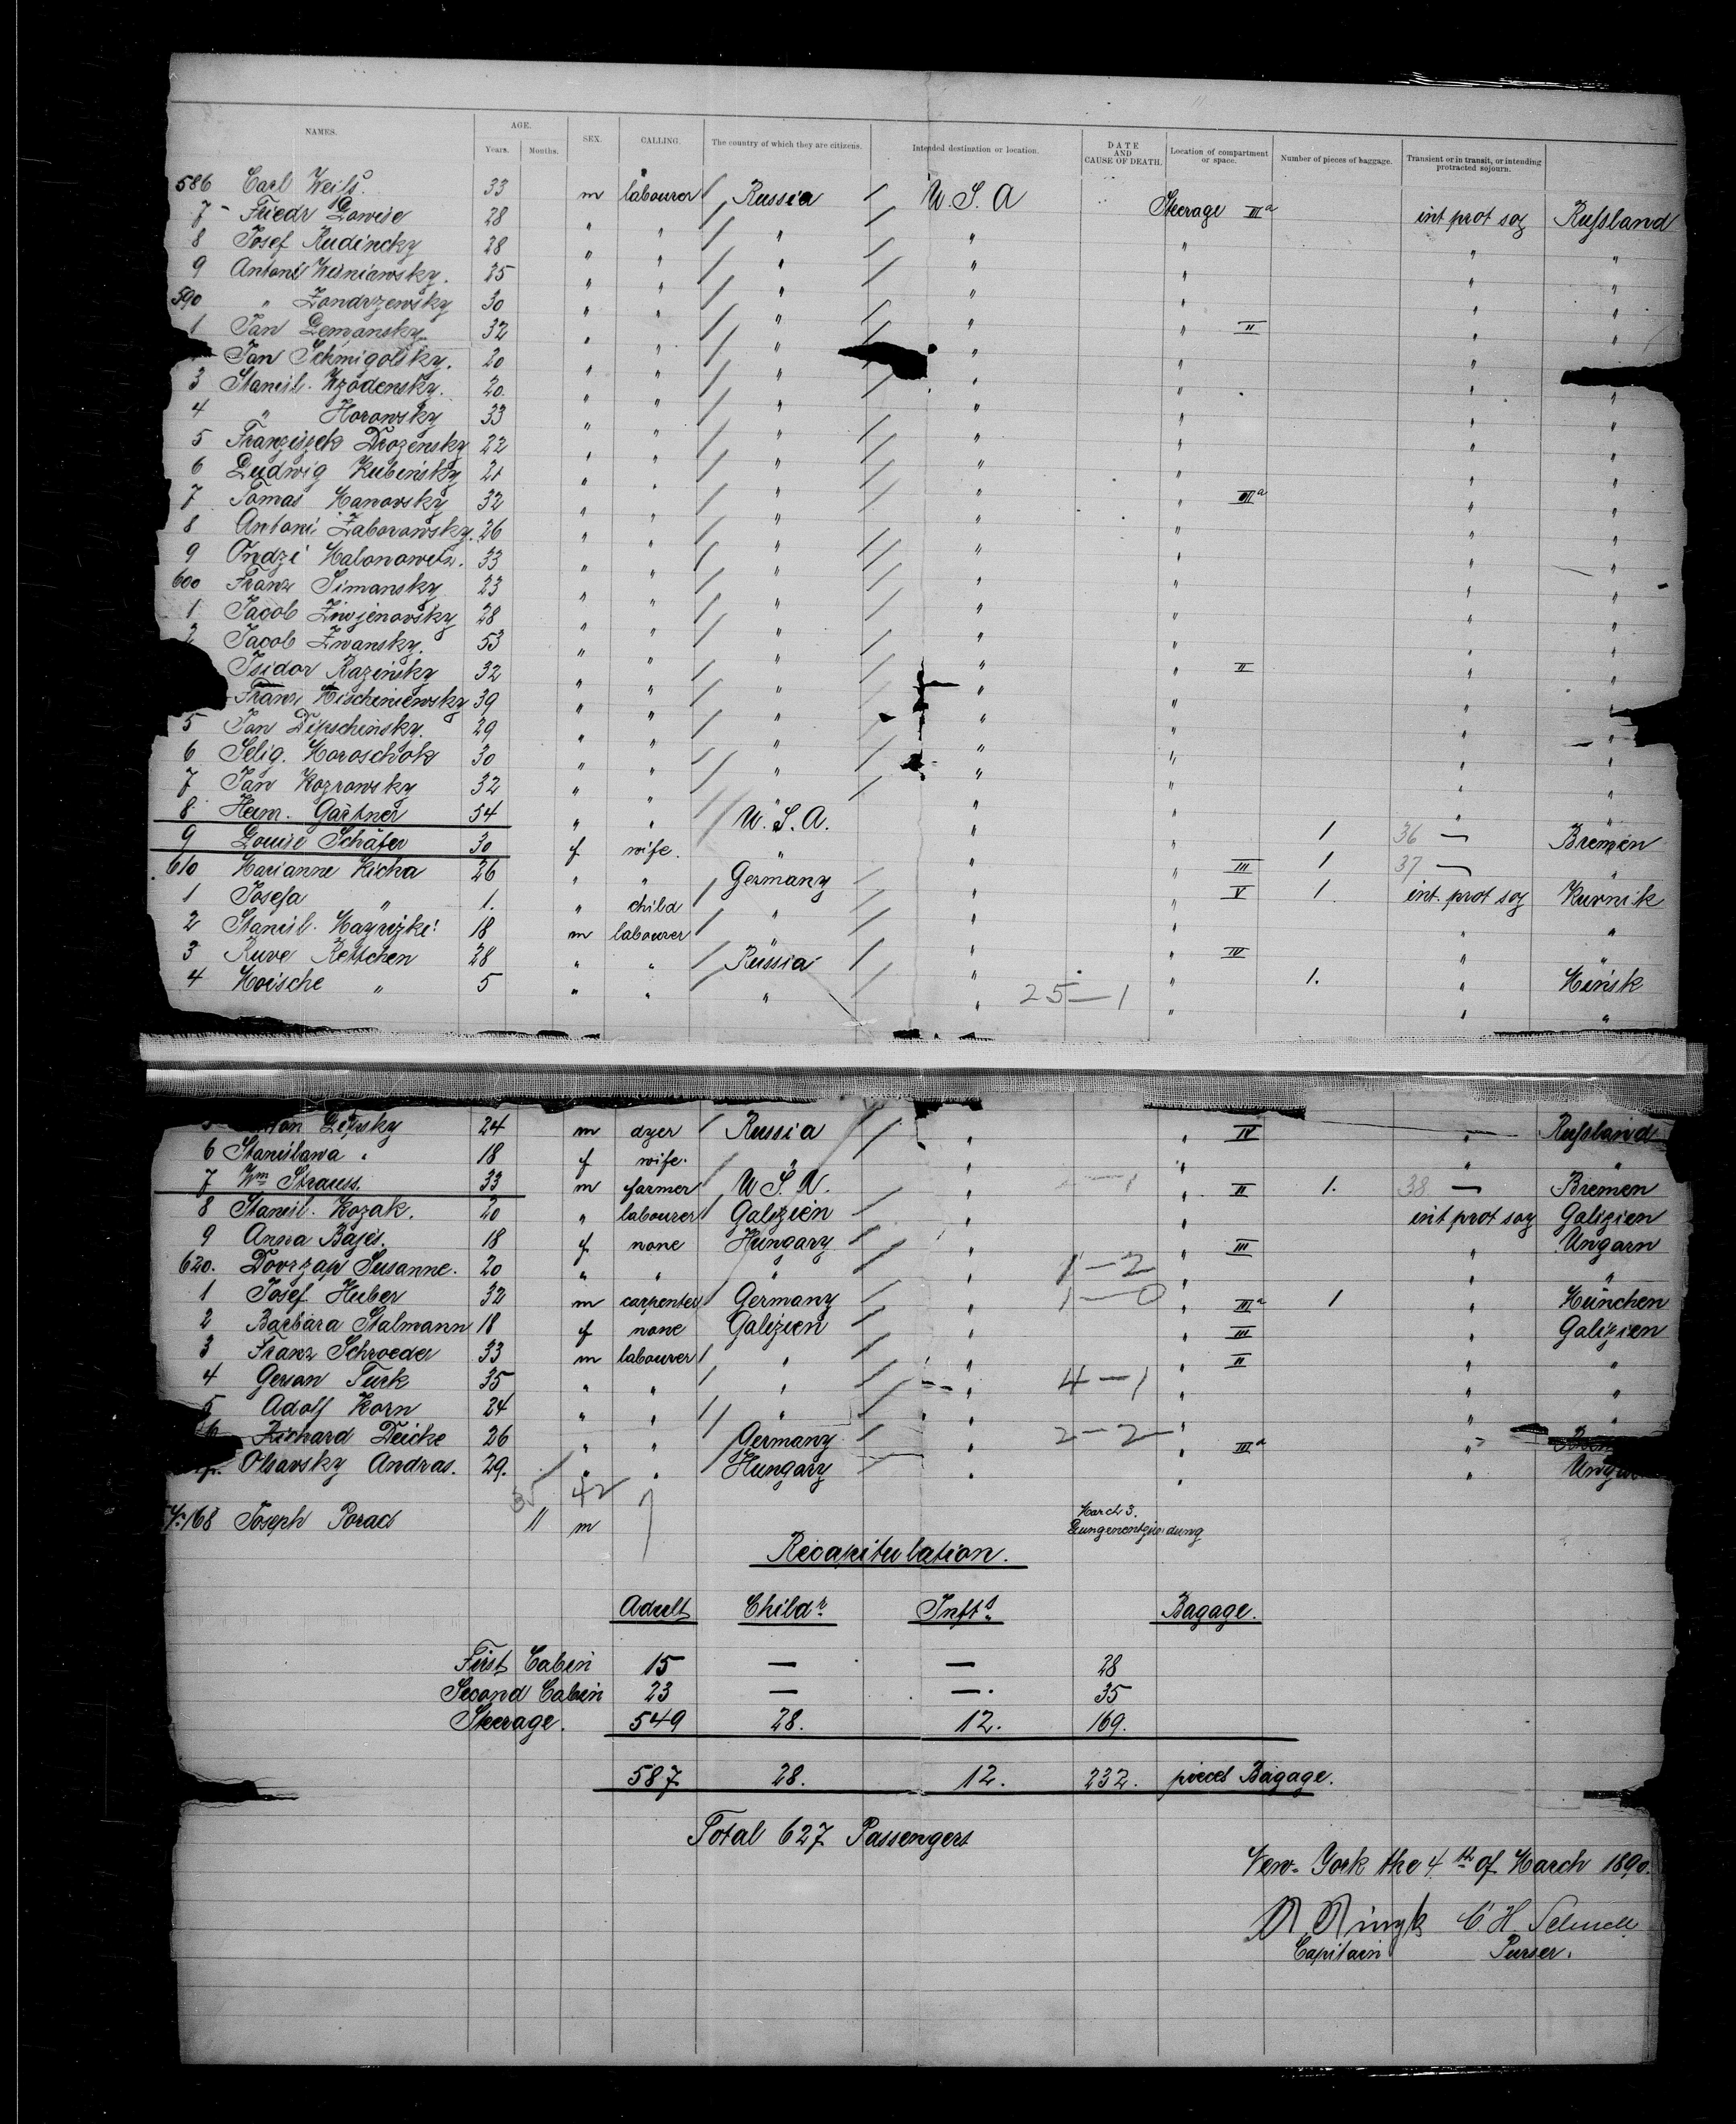 NAMES. AGE. Years. Months. SEX. CALLING. The country of which they are citizens. Intended destination or location. DATE AND CAUSE OF DEATH. Location of compartment or space. Number of pieces of baggage. Transient or in transit, or intending protracted sojourn.
586 Carl 33 m labourer Russia U. S. A Steerage IIIa int prot soj Rußland
7 Friedr 28 " " " " " " "
8 Josef Rudincky 28 " " " " " " "
9 Antoni Wisniawsky. 25 " " " " " " "
590 " Zondrzewsky 30 " " " " " " "
1 Jan Lemansky 32 " " " " " II " "
Jan Schmigolsky. 20 " " " " " "
3 Stanisl. 20 " " " " " " "
4 " Horowsky 33 " " " " " " "
5 Franzisek Drozensky 22 " " " " " " "
6 Ludwig Kubinsky 21 " " " " " " "
7 Tomas Manowsky 32 " " " " " IIIa " "
8 Antoni Zaborowsky. 26 " " " " " " "
9 Ondzi 33 " " " " " " "
600 Franz Simansky 23 " " " " " " "
1 Jacob 28 " " " " " " "
2 Jacob Zwansky. 53 " " " " " " "
Isidor Razinsky 32 " " " " " II " "
Franz Mischiniewsky 39 " " " " " " "
5 Jan Dipschinsky. 29 " " " " " " "
6 Selig. Koroschok 30 " " " " " " "
7 Jan Kozrowsky 32 " " " " " " "
8 Heinr. Gärtner 54 " " U. S. A. " " 1 36 — Bremen
9 Louise Schäfer 30 f wife. " " " III 1 37 — "
610 Marianne Kicha 26 " " Germany " " V 1. int. prot soj Kurnik
1 Josefa " 1. " child " " " " "
2 Stanisl. 18 m labourer " " " IV "
3 Ruve Rettchen 28 " " Russia " " 1. " Minsk
4 Moische " 5 " " " " 25—1 " " "
24 m dyer Russia " " IV " Rußland
6 Stanislawa " 18 f wife. " " " " "
7 Wm Strauss. 33 m farmer U. S. A. " " II 1. 38 — Bremen
8 Stanisl. Kozak. 20 " labourer Galizien " " int prot soj Galizien
9 Anna Bajis. 18 f none Hungary " " III " Ungarn
620. Dovrzap Susanne. 20 " " " " 1—2 " " "
1 Josef Huber 32 m carpenter Germany " 1—0 " IIIa 1 " München
2 Barbara Stalmann 18 f none Galizien " " III " Galizien
3 Franz Schroeder 33 m labourer " " " II " "
4 Gerson Turk 35 " " " " 4—1 " " "
5 Adolf Korn 24 " " " " " " "
6 Richard Deicke 26 " " Germany " 2—2 " IIIa "
Olsavsky Andras. 29. " " Hungary " " "
35 42
168 Joseph Porad 11 m March 3. Lungenentzündung
Recapitulation.
Adult Childr Infts Bagage.
First Cabin 15 — — 28
Second Cabin 23 — — 35
Steerage. 549 28. 12. 169.
587 28. 12. 232. pieces Bagage.
Total 627 Passengers
New-York the 4th of March 1890.
Capitain Purser.